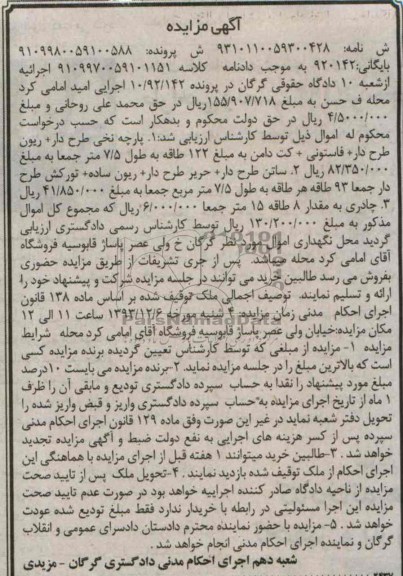 آگهی مزایده
ش نامه: ۹۳۱۰۱۱۰۰۵۹۳۰۰۴۲۸ ش پرونده: ۹۱۰۹۹۸۰۰۵۹۱۰۰۵۸۸ ش
بایگانی: ۹۲۰۱۴۲ به موجب دادنامه کلاسه ۹۱۰۹۹۷۰۰۵۹۱۰۱۱۵۱ اجرائیه
ازشعبه ۱۰ دادگاه حقوقی گرگان در پرونده ۱۰/۹۲/۱۴۲ اجرایی امید امامی کرد
محله ف حسن به مبلغ ۱۵۵/۹۰۷/۷۱۸ ریال در حق محمد علی روحانی و مبلغ
۴/۵۰۰/۰۰۰ ریال در حق دولت محکوم و بدهکار است که حسب درخواست
محکوم له اموال ذیل توسط کارشناس ارزیابی شد:۱. پارچه نخی طرح دار+ ریون
طرح دار+ فاستونی + کت دامن به مبلغ ۱۲۲ طاقه به طول ۷/۵ متر جمعا به مبلغ
۸۲/۳۵۰/۰۰۰ ریال ۲. ساتن طرح دار+ حریر طرح دار+ ریون ساده+ تورکش طرح
دار جمعا ۹۳ طاقه هر طاقه به طول ۷/۵ متر مربع جمعا به مبلغ ۴۱/۸۵۰/۰۰۰ ریال
۳. چادری به مقدار ۸ طاقه ۱۵ متر جمعا ۶/۰۰۰/۰۰۰ ریال که مجموع کل اموال
مذکور به مبلغ ۱۳۰/۲۰۰/۰۰۰ ریال توسط کارشناس رسمی دادگستری ارزیابی
گردید محل نگهداری اموال مورد نظر گرگان خ ولی عصر پاساژ قابوسیه فروشگاه
آقای امامی کرد محله میباشد. پس از جری تشریفات از طریق مزایده حضوری
بفروش می رسد طالبین خرید می توانند در جلسه مزایده شرکت و پیشنهاد خود را
ارائه و تسلیم نمایند. توصیف اجمالی ملک توقیف شده بر اساس ماده ۱۳۸ قانون
اجرای احکام مدنی زمان مزایده: ۴ شنبه مورخه ۱۳۹۳/۱۲/۶ ساعت ۱۱ الی ۱۲
مکان مزایده:خیابان ولی عصر پاساژ قابوسیه فروشگاه آقای امامی کرد محله شرایط
مزایده ۱- مزایده از مبلغی که توسط کارشناس تعیین گردیده برنده مزایده کسی
است که بالاترین مبلغ را در جلسه مزایده نماید. ۲-برنده مزایده می بایست ۱۰درصد
مبلغ مورد پیشنهاد را نقدا به حساب سپرده دادگستری تودیع و مابقی آن را ظرف
۱ ماه از تاریخ اجرای مزایده به حساب سپرده دادگستری واریز و قبض واریز شده را
تحویل دفتر شعبه نماید در غیر این صورت وفق ماده ۱۲۹ قانون اجرای احکام مدنی
سپرده پس از کسر هزینه های اجرایی به نفع دولت ضبط و آگهی مزایده تجدید
خواهد شد . ۳-طالبین خرید میتوانند ۱ هفته قبل از اجرای مزایده با هماهنگی این
اجرای احکام از ملک توقیف شده بازدید نمایند . ۴-تحویل ملک پس از تایید صحت
مزایده از ناحیه دادگاه صادر کننده اجراییه خواهد بود در صورت عدم تایید صحت
مزایده این اجرا مسئولیتی در رابطه با خریدار ندارد فقط مبلغ تودیع شده عودت
خواهد شد . ۵- مزایده با حضور نماینده محترم دادستان دادسرای عمومی و انقلاب
گرگان و نماینده اجرای احکام مدنی انجام خواهد شد .
شعبه دهم اجرای احکام مدنی دادگستری گرگان - مزیدی